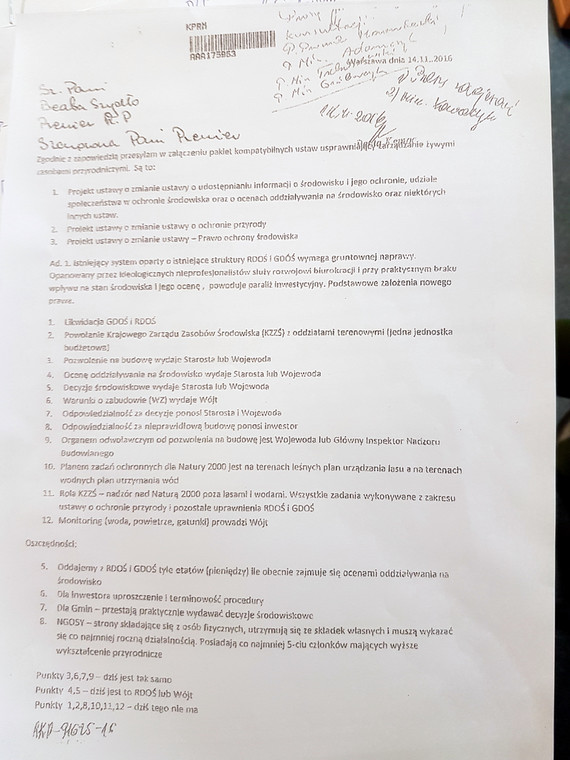 KPRM
AAA175953
Proszę
konsultacji
Min Adamczyk
Min
Min Gróbarczyk
Warszawa dnia 14.11..2016
Sz. Pani
Beata Szydło
Premier RP
Szanowna Pani Premier
Zgodnie z zapowiedzią przesyłam w załączeniu pakiet kompatybilnych ustaw usprawniający zarządzanie żywymi
zasobami przyrodniczymi. Są to:
1. Projekt ustawy o zmianie ustawy o udostępnianiu informacji o środowisku i jego ochronie, udziale
społeczeństwa w ochronie środowiska oraz o ocenach oddziaływania na środowisko oraz niektórych
innych ustaw.
2. Projekt ustawy o zmianie ustawy o ochronie przyrody
3. Projekt ustawy o zmianie ustawy – Prawo ochrony środowiska
Ad. 1. Istniejący system oparty o istniejące struktury RDOŚ i GDOŚ wymaga gruntownej naprawy.
Opanowany przez ideologicznych nieprofesjonalistów służy rozwojowi biurokracji i przy praktycznym braku
wpływu na stan środowiska i jego ocenę , powoduje paraliż inwestycyjny. Podstawowe założenia nowego
prawa.
1. Likwidacja GDOŚ i RDOŚ
2. Powołanie Krajowego Zarządu Zasobów Środowiska (KZZŚ) z oddziałami terenowymi (jedna jednostka
budżetowa)
3. Pozwolenie na budowę wydaje Starosta lub Wojewoda
4. Ocenę oddziaływania na środowisko wydaje Starosta lub Wojewoda
5. Decyzje środowiskowe wydaje Starosta lub Wojewoda
6. Warunki o zabudowie (WZ) wydaje Wójt
7. Odpowiedzialność za decyzje ponosi Starosta i Wojewoda
8. Odpowiedzialność za nieprawidłową budowę ponosi inwestor
9. Organem odwoławczym od pozwolenia na budowę jest Wojewoda lub Główny Inspektor Nadzoru
Budowlanego
10. Planem zadań ochronnych dla Natury 2000 jest na terenach leśnych plan urządzania lasu a na terenach
wodnych plan utrzymania wód
11. Rola KZZŚ – nadzór nad Naturą 2000 poza lasami i wodami. Wszystkie zadania wykonywane z zakresu
ustawy o ochronie przyrody i pozostałe uprawnienia RDOŚ i GDOŚ
12. Monitoring (woda, powietrze, gatunki) prowadzi Wójt
Oszczędności:
5. Oddajemy z RDOŚ i GDOŚ tyle etatów (pieniędzy) ile obecnie zajmuje się ocenami oddziaływania na
środowisko
6. Dla inwestora uproszczenie i terminowość procedury
7. Dla Gmin – przestają praktycznie wydawać decyzje środowiskowe
8. NGOSY – strony składające się z osób fizycznych, utrzymują się ze składek własnych i muszą wykazać
się co najmniej roczną działalnością. Posiadają co najmniej 5-ciu członków mających wyższe
wykształcenie przyrodnicze
Punkty 3,6,7,9 – dziś jest tak samo
Punkty 4,5 – dziś jest to RDOŚ lub Wójt
Punkty 1,2,8,10,11,12 – dziś tego nie ma